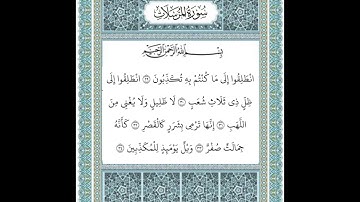 سُورَةُ المُرْسَلَات
بِسْمِ اللَّهِ الرَّحْمَنِ الرَّحِيمِ
انْطَلِقُوا إِلَى مَا كُنْتُمْ بِهِ تُكَذِّبُونَ ٢٩ انْطَلِقُوا إِلَى
ظِلٍّ ذِي ثَلَاثِ شُعَبٍ ٣٠ لَا ظَلِيلٍ وَلَا يُغْنِي مِنَ
اللَّهَبِ ٣١ إِنَّهَا تَرْمِي بِشَرَرٍ كَالْقَصْرِ ٣٢ كَأَنَّهُ
جِمَالَتٌ صُفْرٌ ٣٣ وَيْلٌ يَوْمَئِذٍ لِلْمُكَذِّبِينَ ٣٤